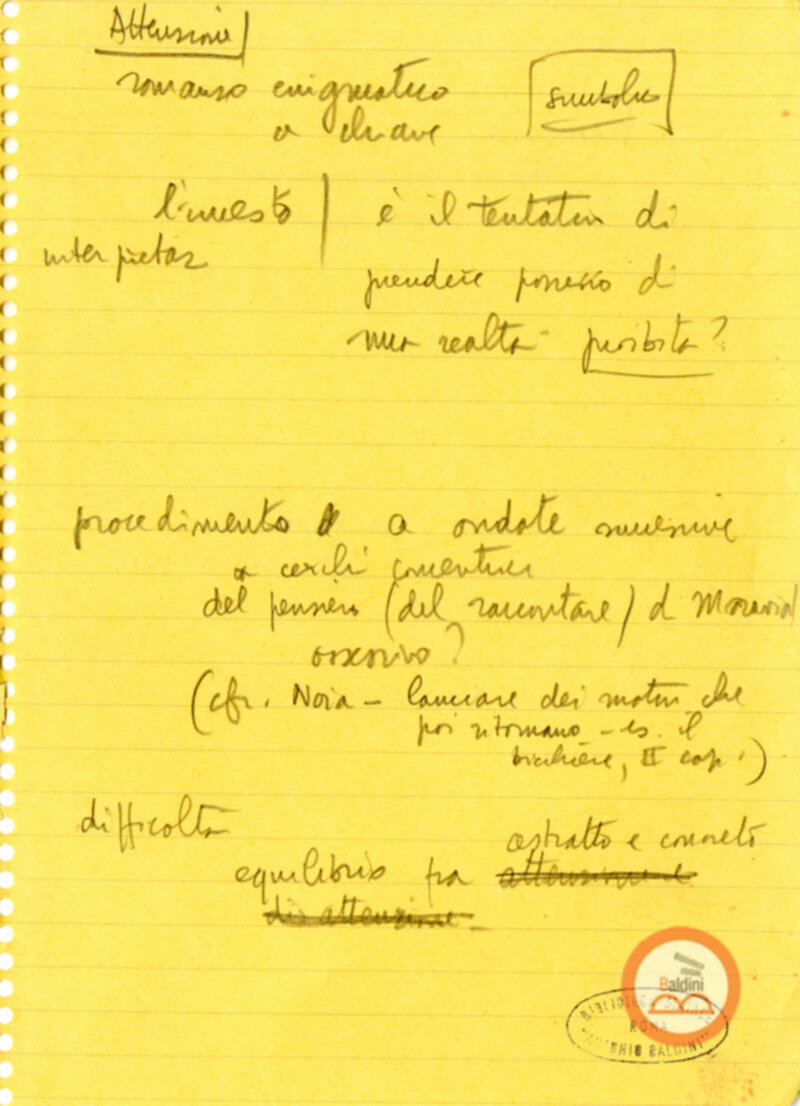 Attenzione
romanzo enigmatico
o chiave
simbolico
l'incesto
interpretaz
è il tentativo di
prendere possesso di
una realtà proibita?
procedimento a ondate successive
o cerchi concentrici
del pensiero (del raccontare) d Moravia
ossessivo?
(cfr. Noia - lanciare dei motivi che
poi ritornano - es. il
bicchiere, II cap.)
difficoltà
astratto e concreto
equilibrio fra attenzione e
disattenzione
Biblioteca
statale
Baldini
BIBLIOTECA
ROMA
BALDINI